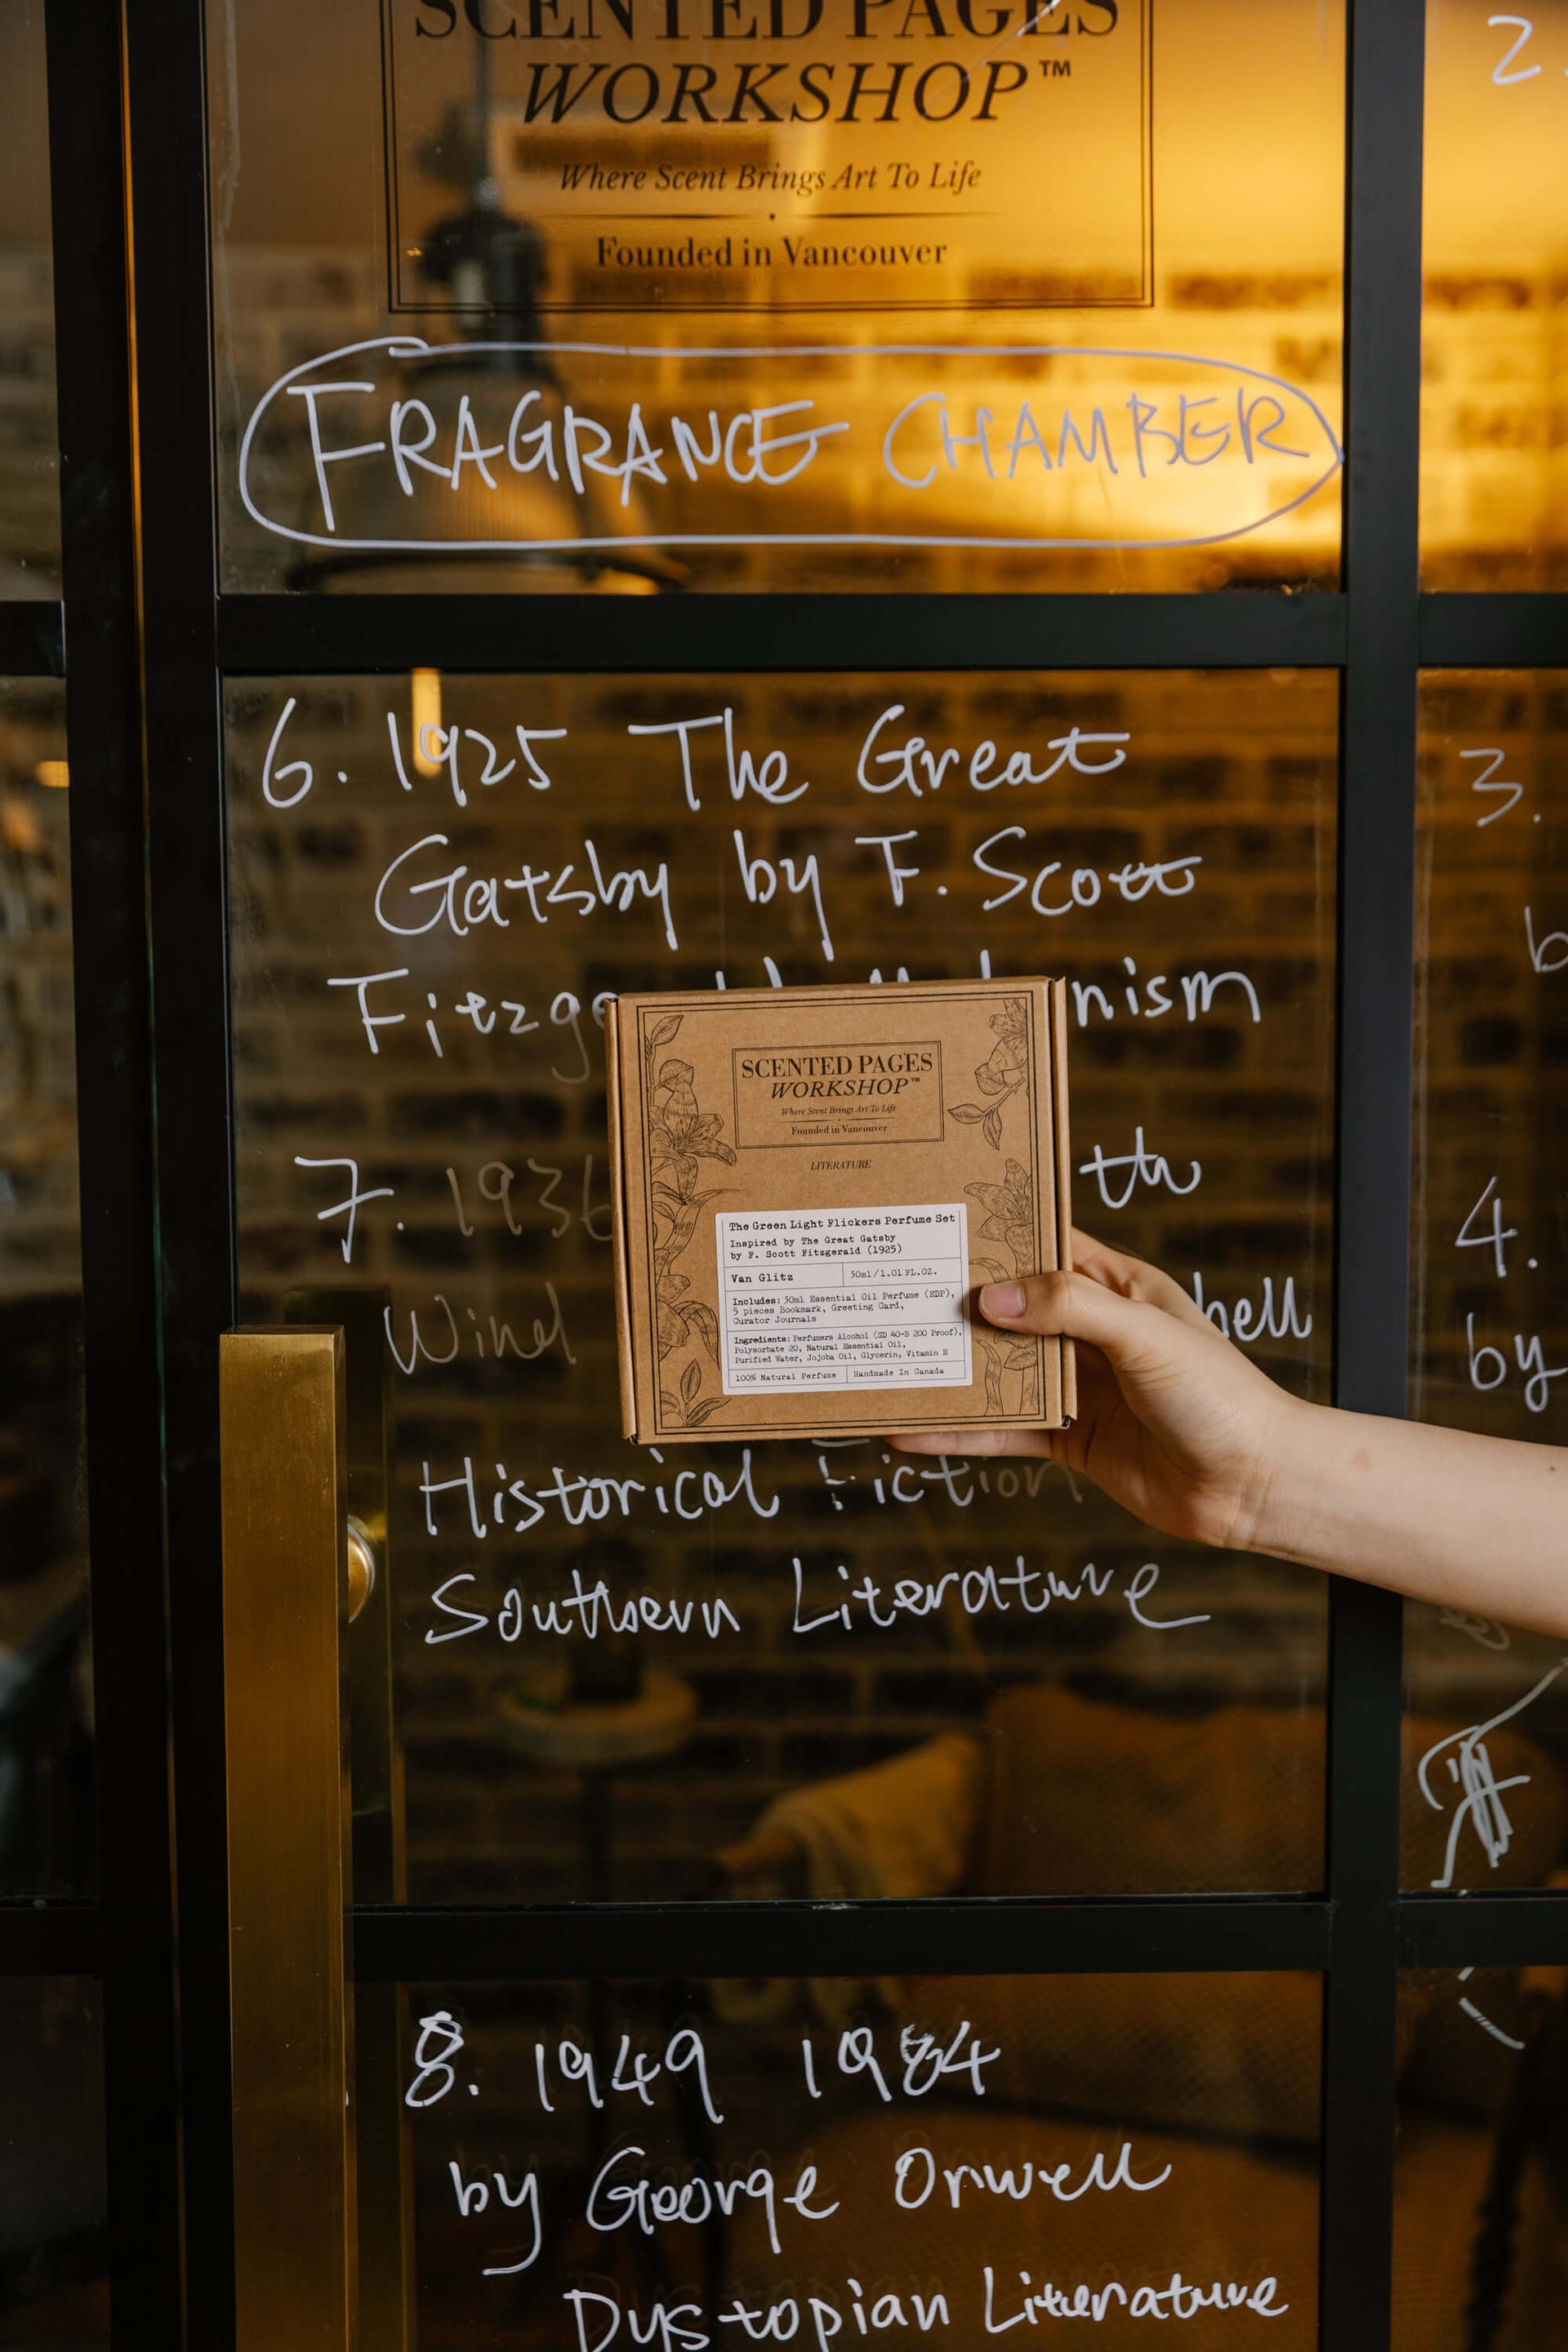 SCENTED PAGES
WORKSHOP™
Where Scent Brings Art To Life
Founded in Vancouver
FRAGRANCE CHAMBER
6. 1925 The Great
Gatsby by F. Scott
nism
7. 1936
th
Wind
hell
Historical Fiction
Southern Literature
8. 1949 1984
by George Orwell
Dystopian Literature
SCENTED PAGES
WORKSHOP™
Where Scent Brings Art To Life
Founded in Vancouver
LITERATURE
The Green Light Flickers Perfume Set
Inspired by The Great Gatsby
by F. Scott Fitzgerald (1925)
Van Glitz
30ml/1.01 FL.OZ.
Includes: 30ml Essential Oil Perfume (EDP),
5 pieces Bookmark, Greeting Card,
Curator Journals
Ingredients: Perfumers Alcohol (SD 40-B 200 Proof),
Polysorbate 20, Natural Essential Oil,
Purified Water, Jojoba Oil, Glycerin, Vitamin E
100% Natural Perfume
Handmade In Canada
2.
3.
b
4.
by